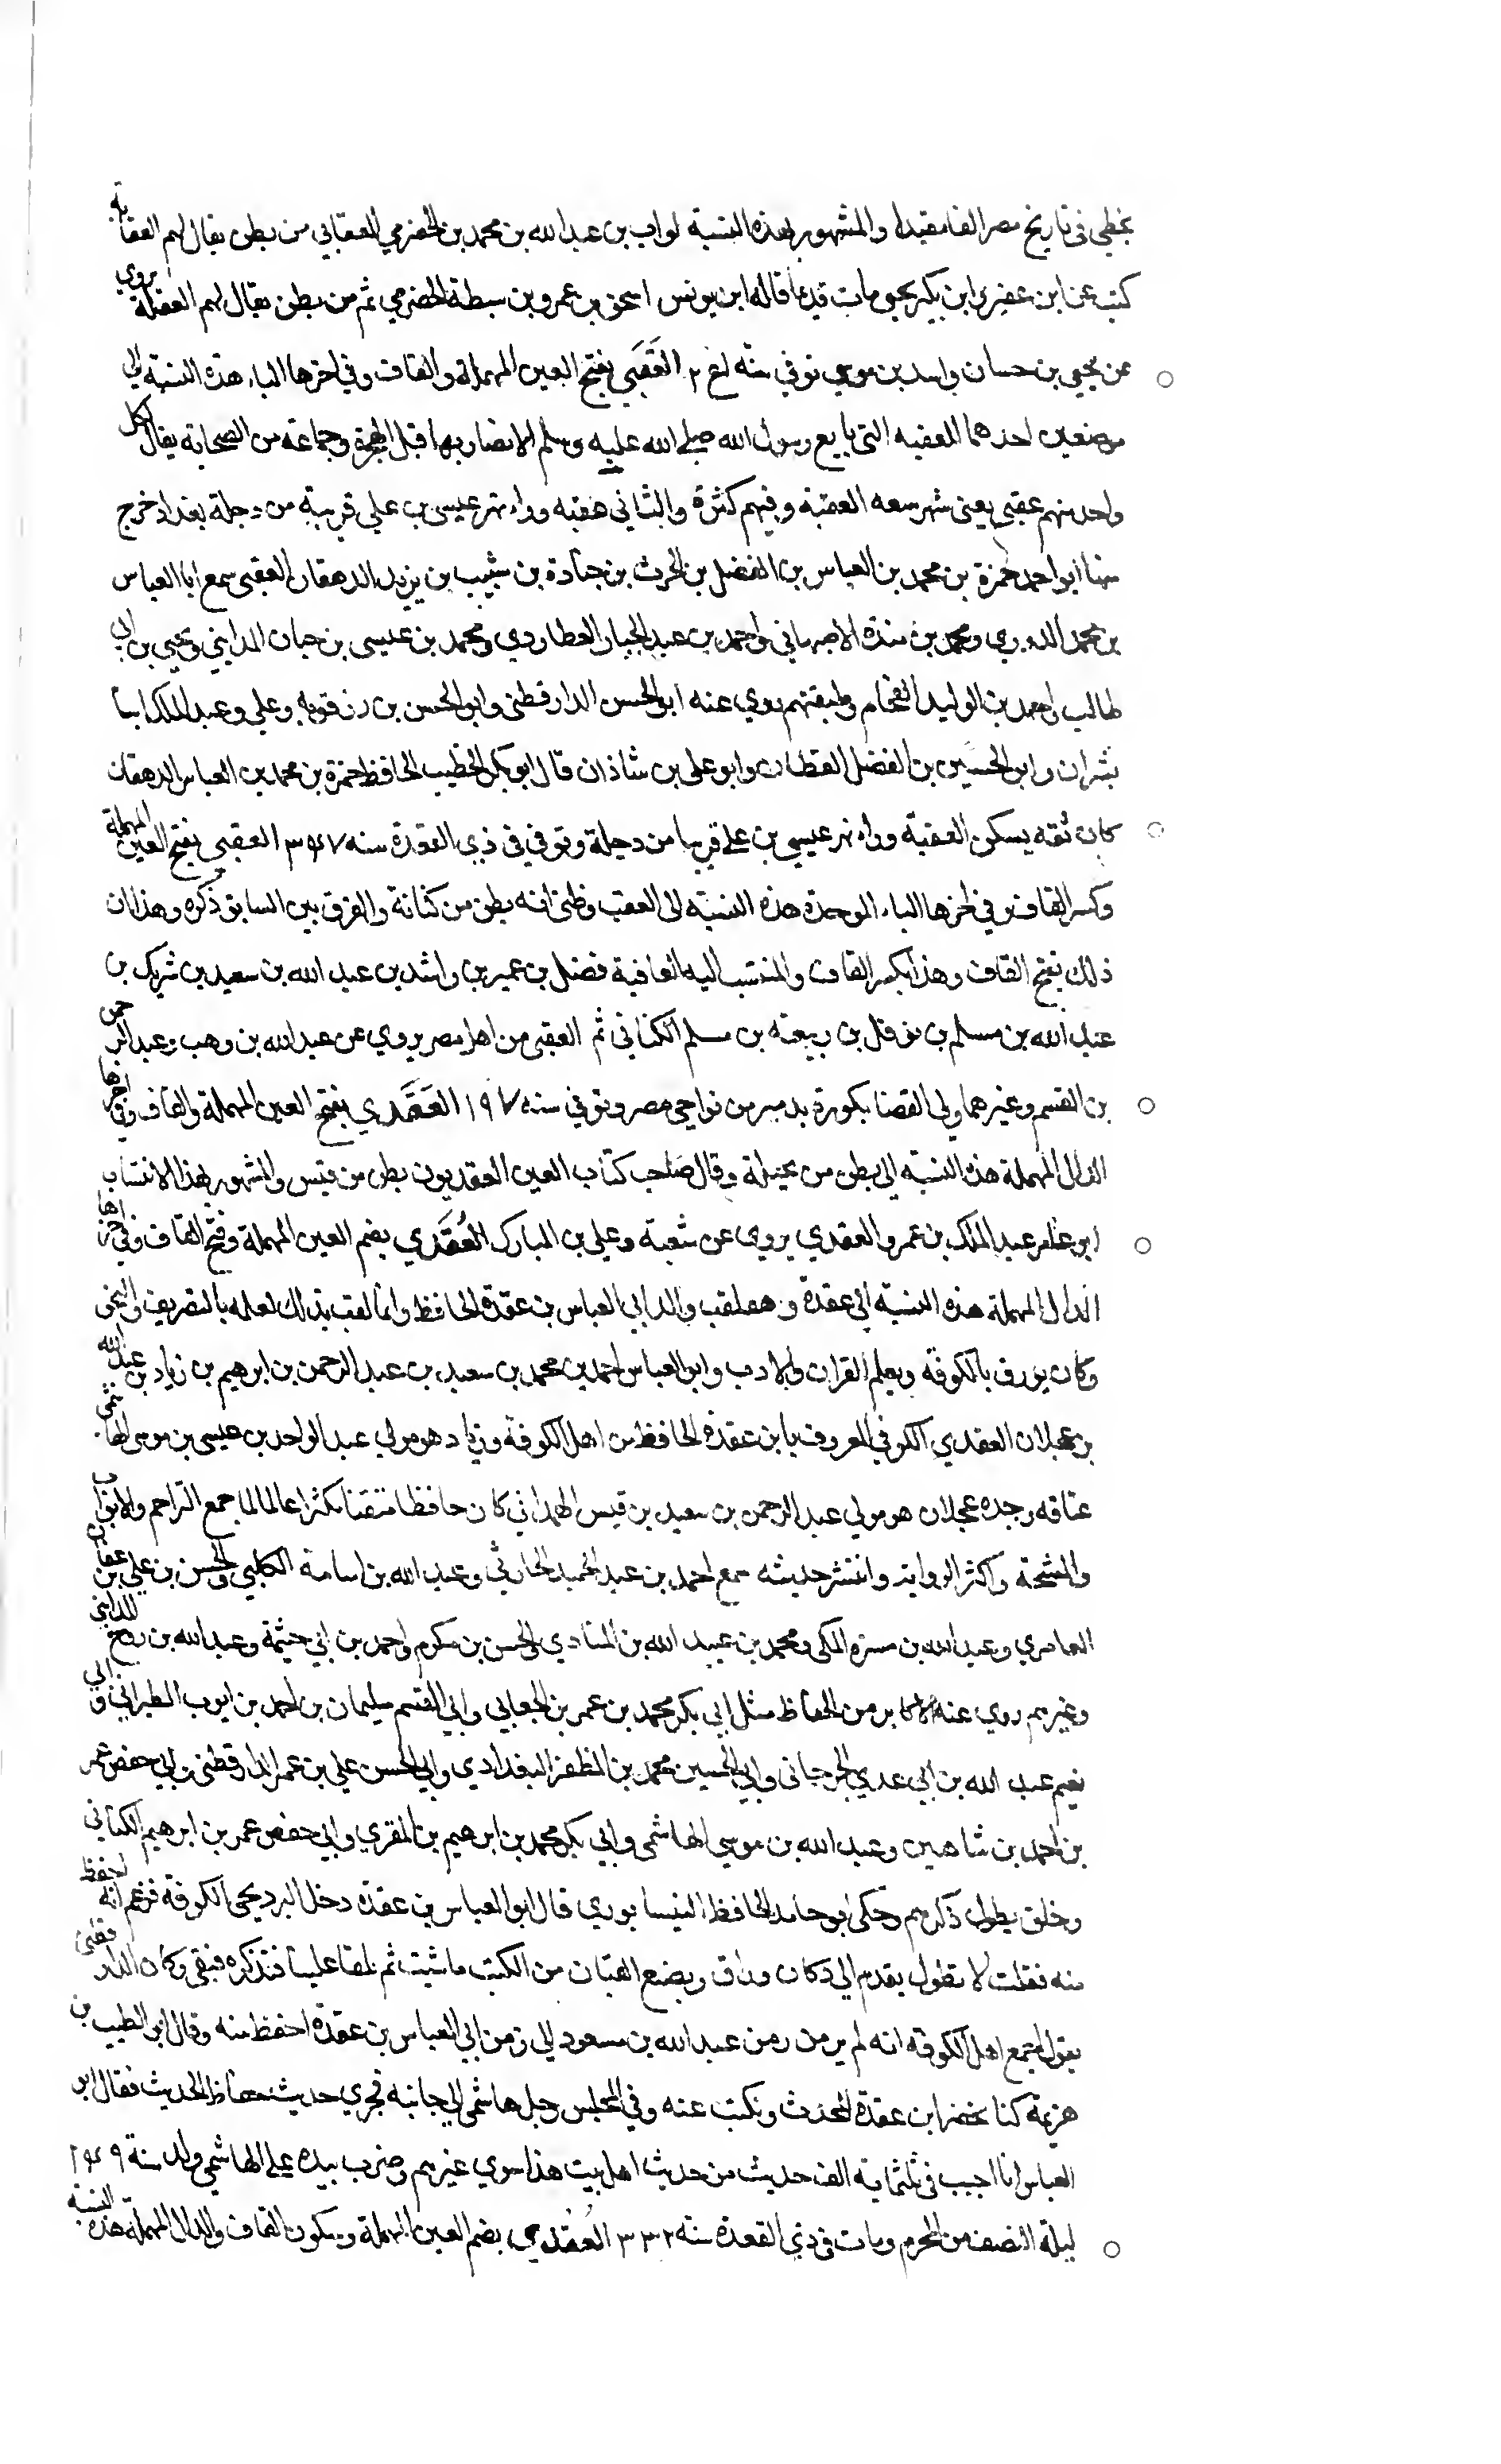 بخطي في تاريخ مصر الفا مقيدا والمشهور بهذه النسبة لواب بن عبد الله بن محمد بن الخضرمي العقابي من بطن يقال لهم العقابة
كتب عن ابن عفير وابن بكير يحيى مات قديما قاله ابن يونس اسحق بن عمرو بن سبطة الحضرمي ثم من بطن يقال لهم العقلة يروي
عن يحيى بن حسان واسد بن موسي توفي سنه العَقَبَي بفتح العين المهملة والقاف وفي اخرها الباء هذه النسبة الي
موضعين احدهما العقبه التي بايع رسول الله صلى الله عليه وسلم الانصار بها قبل الهجرة وجماعة من الصحابة يقال لكل
واحد منهم عقبي يعني شهر سعه العقبة وفيهم كثرة والثاني عقبه وراء نهر عيسى بن علي قريبة من دجلة بغداد خرج
منها ابو احمد حمزة بن محمد بن العباس بن الفضل بن الحرث بن جنادة بن شبيب بن يزيد الدهقان العقبي سمع ابا العباس
بن محمد الدوري ومحمد بن مندة الاصبهاني واحمد بن عبد الجبار العطاردي ومحمد بن عيسى بن حيان المدايني ويحيى بن ابي
طالب واحمد بن الوليد الفحام وطبقتهم روي عنه ابو الحسن الدارقطني وابو الحسن بن رزقويه وعلي وعبد الملك ابنا
بشران وابو الحسين بن الفضل القطان وابو علي بن شاذان قال ابو بكر الخطيب الحافظ حمزة بن محمد بن العباس الدهقان
كان ثقه يسكن العقبة وراء نهر عيسي بن علي قريبا من دجلة وتوفي في ذي القعدة سنه ٣٤٧ العقبي بفتح العين المهملة
وكسر القاف وفي اخرها الباء الموحدة هذه النسبة الى العقب وظني انه بطن من كنانة والفرق بين السابق ذكره وهذا ان
ذلك بفتح القاف وهذا بكسر القاف والمنتسب اليه العافية فضل بن عمير بن راشد بن عبد الله بن سعيد بن شريك بن
عبد الله بن مسلم بن نوفل بن ربيعه بن مسلم الكناني ثم العقبي من اهل مصر يروي عن عبد الله بن وهب وعبد الرحمن
بن القسم وغيرهما ولي القضا بكورة بدمير من نواحي مصر وتوفي سنه ١٩٧ العَقَدي بفتح العين المهملة والقاف وفي اخرها
الدال المهملة هذه النسبة الى بطن من بجيلة وقال صاحب كتاب العين العقديون بطن من قيس والمشهور بهذا الانتساب
ابو عامر عبد الملك بن عمرو العقدي يروي عن شعبة وعلي بن المبارك العُقَدي بضم العين المهملة وفتح القاف وفي اخرها
الدال المهملة هذه النسبة الى عقدة وهو لقب والد ابي العباس بن عقدة الحافظ وانما لقب بذلك لعلمه بالتصريف والنحو
وكان يورق بالكوفه ويعلم القران والادب وابو العباس احمد بن محمد بن سعيد بن عبد الرحمن بن ابرهيم بن زياد بن عبد الله
بن عجلان العقدي الكوفي المعروف بابن عقدة الحافظ من اهل الكوفة وزياد هو مولي عبد الواحد بن عيسى بن موسى الهاشمي
عتاقه وجده عجلان هو مولي عبد الرحمن بن سعيد بن قيس الهمداني كان حافظا متقنا مكثرا عالما جمع التراجم والابواب
والمشيخة واكثر الرواية وانتشر حديثه سمع احمد بن عبد الحميد الحارثي وعبد الله بن اسامة الكلبي والحسن بن علي بن عفان
العامري وعبد الله بن مسرة المكي ومحمد بن عبيد الله بن المنادي والحسن بن مكرم واحمد بن ابي خيثمة وعبد الله بن روح المدايني
وغيرهم روي عنه الاكابر من الحفاظ مثل ابي بكر محمد بن عمر بن الجعابي وابي القسم سليمان بن احمد بن ايوب الطبراني وابي
نعيم عبد الله بن ابي عدي الجرجاني وابي الحسين محمد بن المظفر البغدادي وابي الحسن علي بن عمر الدارقطني وابي حفص عمر
بن احمد بن شاهين وعبد الله بن موسي الهاشمي وابي بكر محمد بن ابرهيم بن المقري وابي حفص عمر بن ابرهيم الكتاني
وخلق يطول ذكرهم وحكى ابو حامد الحافظ النيسابوري قال ابو العباس بن عقدة دخل البرديجي الكوفة فزعم انه احفظ
منه فقلت لا تطول يقدم الي دكان وراق ويضع القبان من الكتب ما شيت ثم يلقا علينا فنذكره فبقي وكان الدارقطني
يقول اجمع اهل الكوفة انه لم ير من زمن عبد الله بن مسعود الى زمن ابي العباس بن عقدة احفظ منه وقال ابو الطيب بن
هرثمة كنا بحضرة ابن عقدة المحدث ونكتب عنه وفي المجلس رجل هاشمي الي جانبه فجري حديث حفاظ الحديث فقال ابو
العباس انا اجيب في ثلثماية الف حديث من حديث اهل بيت هذا سوي غيرهم وضرب بيده على الهاشمي ولد سنة ٢٤٩
ليلة النصف من المحرم ومات في ذي القعدة سنة ٣٣٢ العُقْدي بضم العين المهملة وسكون القاف والدال المهملة هذه النسبة